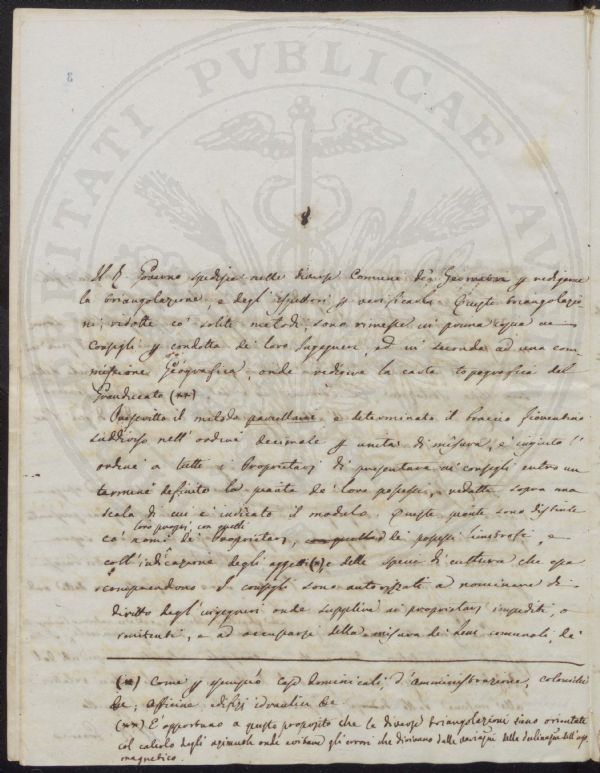 8
VTILITATI PVBLICAE
8
Il R. Governo spedisce nelle diverse Comuni dei Geometri p redigerne
la triangolazione, e degl'ispettori p verificarla. Queste triangolazio
ni, ridotte co' soliti metodi, sono rimesse in prima copia ai
Consigli p condotta de' loro Ingegneri, ed in seconda ad una com-
missione Geografica, onde redigere la carta topografica del
Granducato (**).
Prescritto il metodo parcellare e determinato il braccio fiorentino
suddiviso nell'ordine decimale p unità di misura, è ingiunto l'
ordine a tutti i Proprietarj di presentare ai consigli entro un
termine definito la pianta de' loro possessi, redatta sopra una
scala di cui è indicato il modulo. Queste piante sono distinte
loro proprj, con quelli
co' nomi de' Proprietarj, de' possessi limitrofi, e
coll'indicazione degli oggetti (*) e delle specie di cultura che essi
comprendono. I consigli sono autorizzati a nominare di
diritto degl'ingegneri onde supplire ai proprietarj impediti, o
renitenti, e ad occuparsi della misura de' beni comunali, de'
(*) Come p esempio case domenicali, d'amministrazione, coloniche
&c; officine, edifizj idraulici &c
(**) È opportuno a questo proposito che le diverse triangolazioni siano orientate
col calcolo degli azimuti onde evitare gli errori che derivano dalle variazioni della declinazione dell'ago
magnetico.